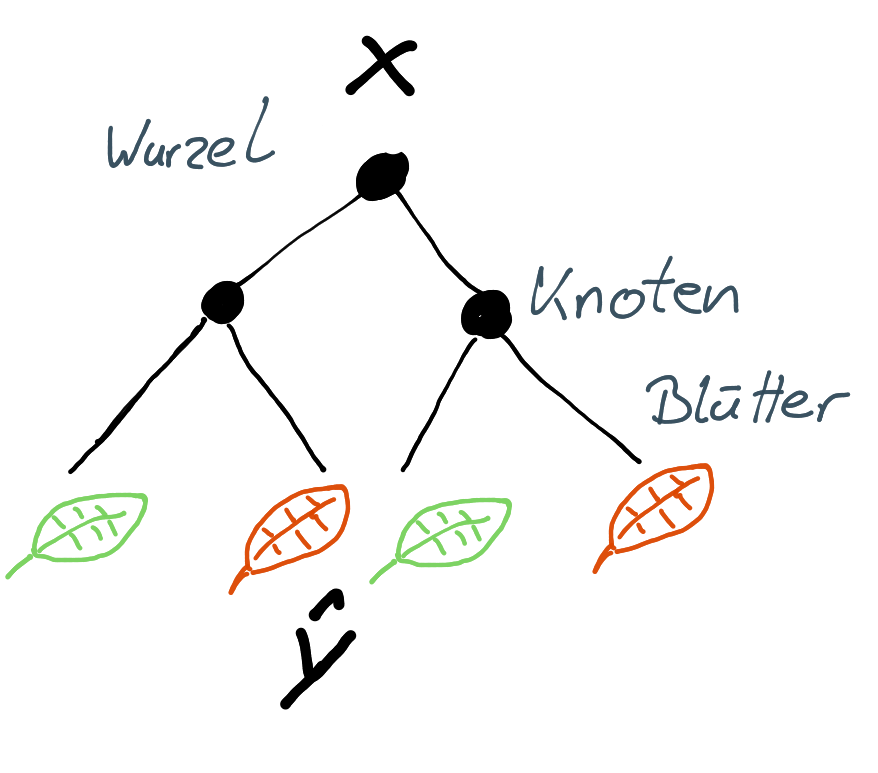 X
Wurzel
Knoten
Blätter
ŷ